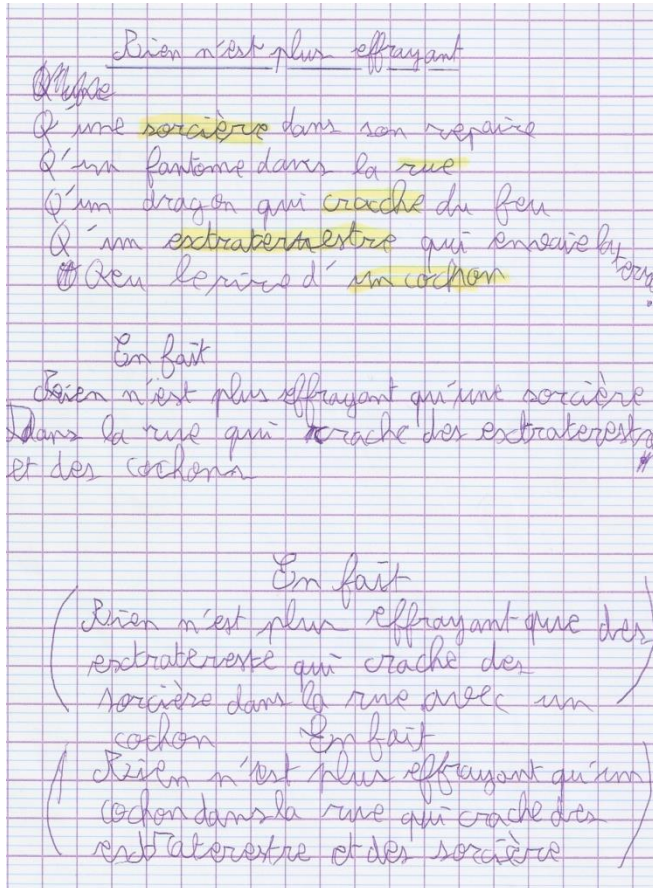 Rien n'est plus effrayant
Q'une sorcière dans son repaire
Q'un fantome dans la rue
Q'un dragon qui crache du feu
Q'un extraterrestre qui envaie la terre
Qeu le rire d'un cochon
En fait
Rien n'est plus effrayant qu'une sorcière
Dans la rue qui crache des extraterestre
et des cochons
En fait
(Rien n'est plus effrayant que des)
extratereste qui crache des
sorcière dans la rue avec un
cochon En fait
(Rien n'est plus effrayant qu'un)
cochon dans la rue qui crache des
extraterestre et des sorcière